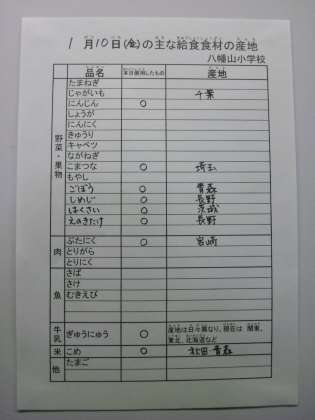 1月10日(金)の主な給食食材の産地
八幡山小学校
品名 本日使用したもの 産地
野菜・果物
たまねぎ
じゃがいも 千葉
にんじん ○
しょうが
にんにく
きゅうり
キャベツ
ながねぎ
こまつな ○ 埼玉
もやし
ごぼう ○ 青森
しめじ ○ 長野
はくさい ○ 茨城
えのきたけ ○ 長野
肉
ぶたにく ○ 宮崎
とりがら
とりにく
魚
さば
さけ
むきえび
牛乳 ぎゅうにゅう ○ 産地は日々異なり、現在は 関東、
東北、北海道など
米 こめ ○ 秋田 青森
他 たまご